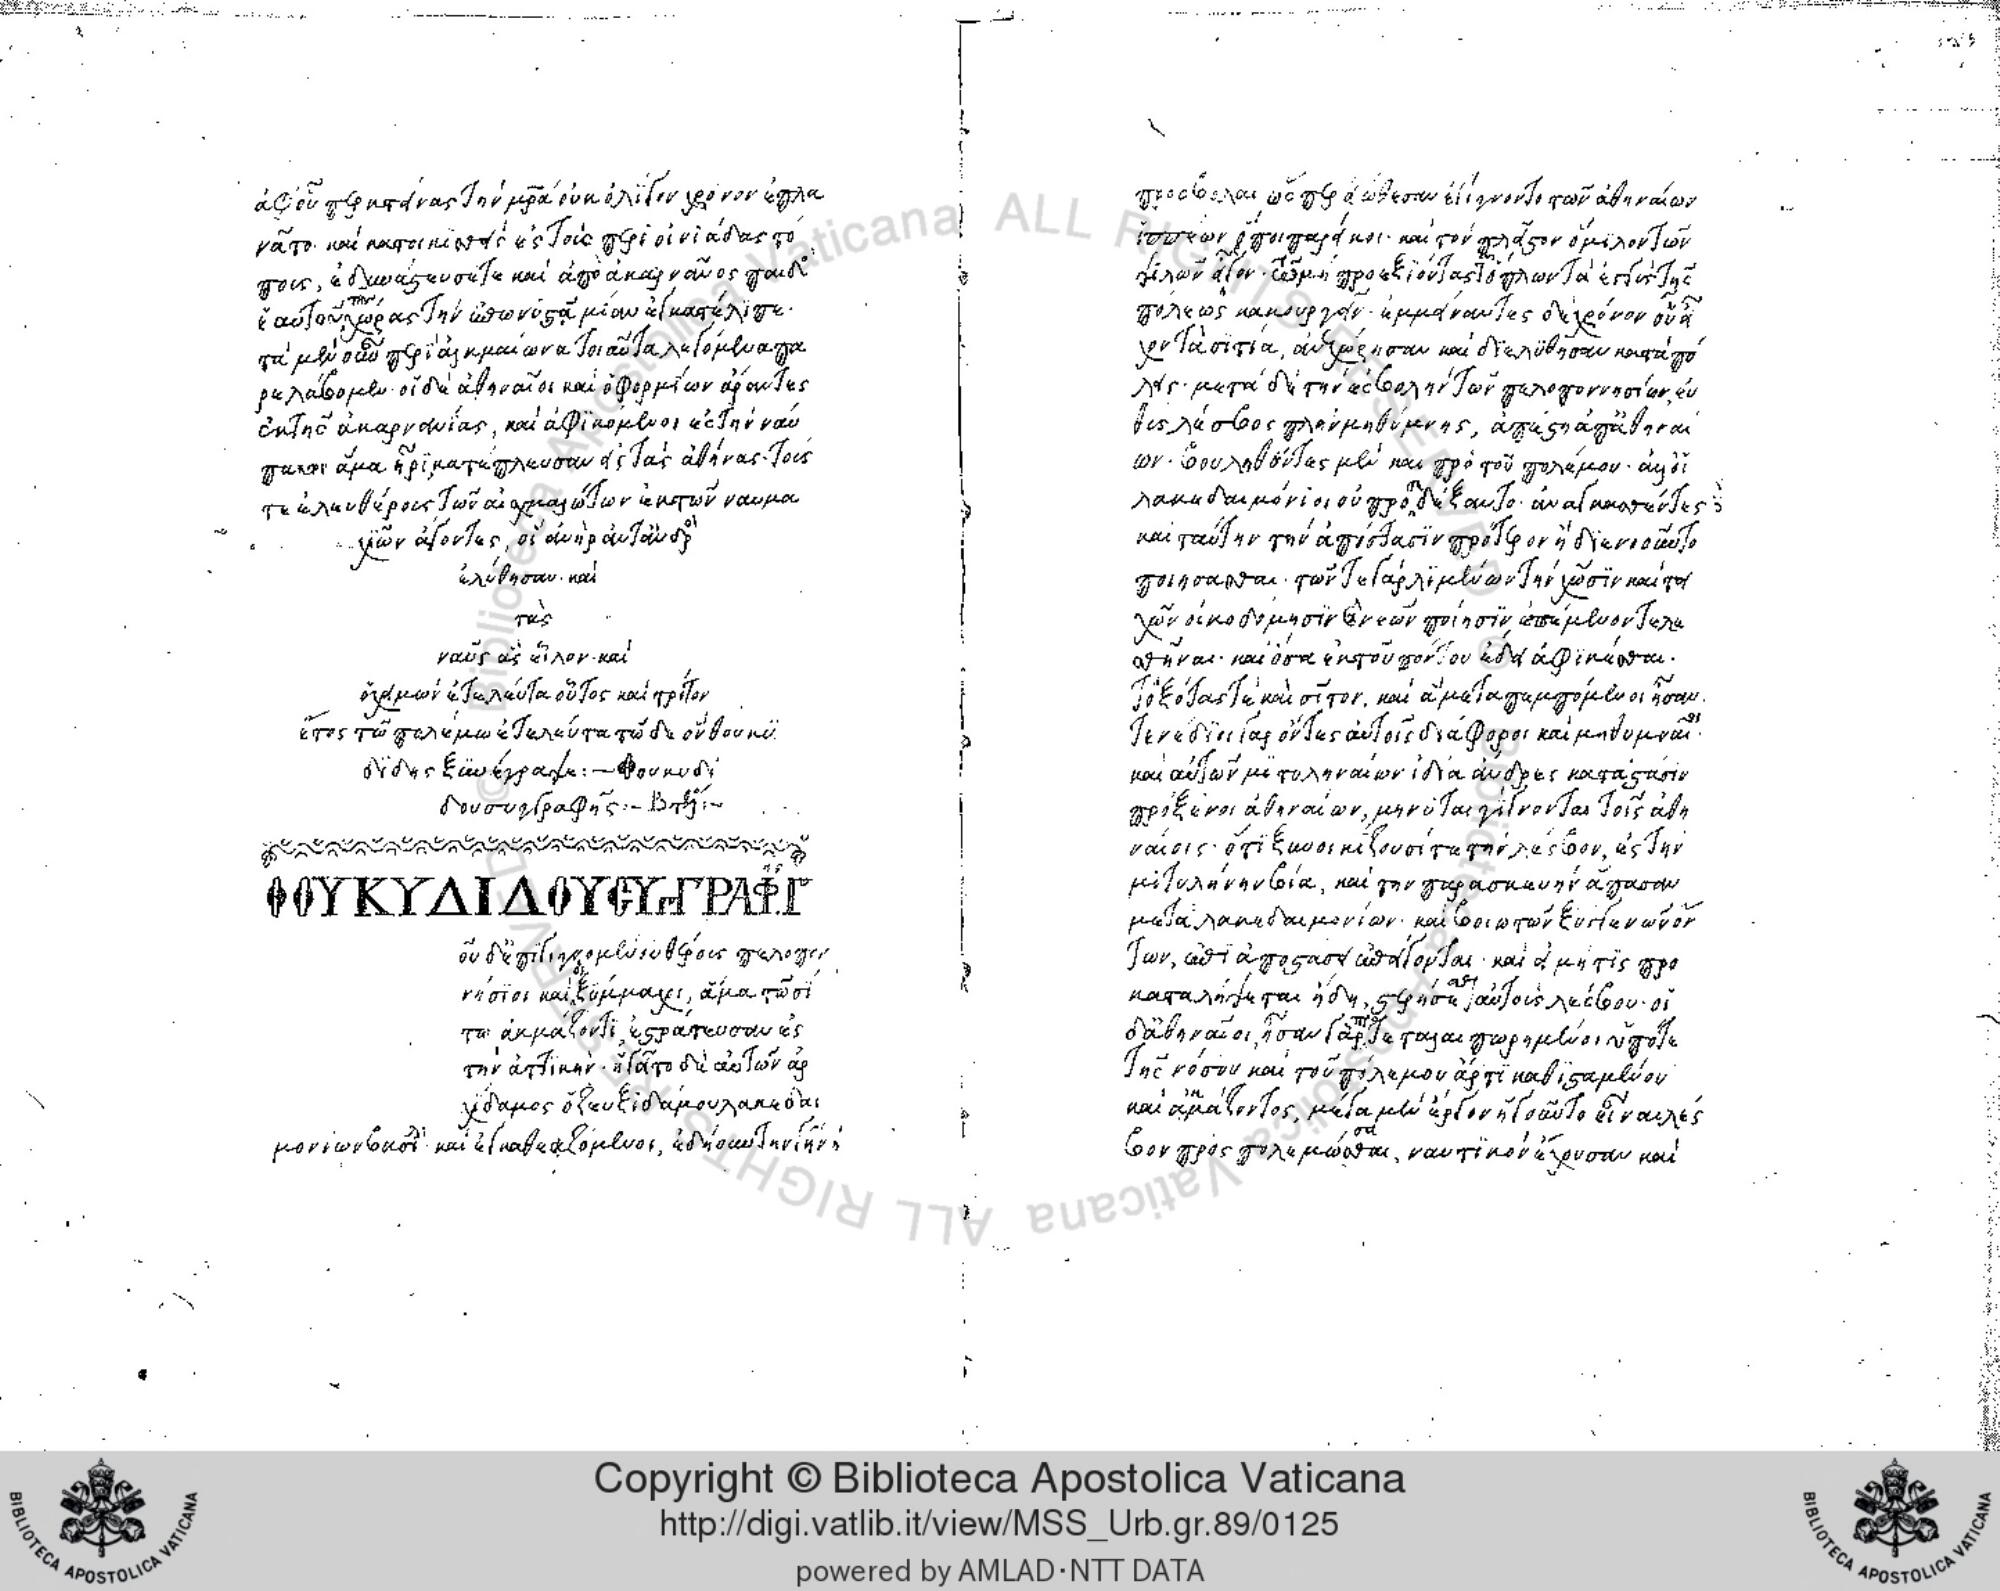 ἀφοῦπερ κτείνας τὴν μρα οὐκ ὀλίγον χρόνον ἐπλα
νᾶτο· καὶ κατοικισθεὶς ἐς τοὺς περὶ οἰνιάδας τό
πους, ἐδυνάστευσέ τε καὶ ἀπὸ ἀκαρνᾶνος παιδὸς
ἑαυτοῦ τῆς χώρας τὴν ἐπωνυμίαν ἐγκατέλιπε·
τὰ μὲν οὖν περὶ ἀλκμαίωνα τοιαῦτα λεγόμενα πα
ρελάβομεν· οἱ δὲ ἀθηναῖοι καὶ ὁ φορμίων ἄραντες
ἐκ τῆς ἀκαρνανίας, καὶ ἀφϊκόμενοι ἐς τὴν ναύ
πακτον ἅμα ἦρϊ κατέπλευσαν ἐς τὰς ἀθήνας· τούς
τε ἐλευθέρους τῶν αἰχμαλώτων ἐκ τῶν ναυμα
χιῶν ἄγοντες, οἳ ἀνὴρ ἀντ' ἀνδρὸς
ἐλύθησαν· καὶ
τὰς
ναῦς ἃς εἷλον· καὶ
ὁ χειμὼν ἐτελεύτα οὗτος καὶ τρίτον
ἔτος τῶ πολέμω ἐτελεύτα τῶδε ὃν θουκυ
δίδης ξυνέγραψε:—Θουκυδί
δου συγγραφῆς:—
ΘΟΥΚΥΔΙΔΟΥ ΣΥΓΓΡΑΦῆς Γ
οῦ δ' ἐπιγιγνομένου θέρους πελοπον
νήσϊοι καὶ οἱ ξύμμαχοι, ἅμα τῶ σί
τω ἀκμάζοντι, ἐστράτευσαν ἐς
τὴν ἀττικήν· ἡγεῖτο δὲ αὐτῶν ἀρ
χίδαμος ὁ ζευξιδάμου λακεδαι
μονίων βασιλεύς· καὶ ἐγκαθεζόμενοι, ἐδήουν τὴν γῆν· καὶ
προσβολαὶ ὥσπερ εἰώθεσαν ἐγίγνοντο τῶν ἀθηναίων
ἱππέων ὅποι παρείκοι· καὶ τὸν πλεῖστον ὅμϊλον τῶν
ψιλῶν εἶργον· τὸ μὴ προεξϊόντας τῶν ὅπλων τὰ ἐγγὺς τῆς
πόλεως κακουργεῖν· ἐμμείναντες δὲ χρόνον οὗ εἶ
χον τὰ σιτία, ἀνεχώρησαν καὶ διελύθησαν κατὰ πό
λεις· μετὰ δὲ τὴν ἐσβολὴν τῶν πελοποννησίων, εὐ
θὺς λέσβος πλὴν μηθύμνης, ἀπέστη ἀπ' ἀθηναί
ων· βουληθέντες μὲν καὶ πρὸ τοῦ πολέμου· ἀλλ' οἱ
λακεδαιμόνιοι οὐ προσεδέξαντο· ἀναγκασθέντες δὲ
καὶ ταύτην τὴν ἀπόστασϊν πρότερον ἢ διενοοῦντο
ποιήσασθαι· τῶν τε γὰρ λϊμένων τὴν χῶσϊν καὶ τει
χῶν οἰκοδόμησϊν καὶ νεῶν ποίησϊν ἐπέμενον τελε
σθῆναι· καὶ ὅσα ἐκ τοῦ πόντου ἔδει ἀφϊκέσθαι·
τοξότας τὲ καὶ σῖτον, καὶ ἃ μεταπεμπόμενοι ἦσαν·
τενέδϊοι γὰρ ὄντες αὐτοῖς διάφοροι καὶ μηθυμναῖοι·
καὶ αὐτῶν μϊτυληναίων ἰδία ἄνδρες κατὰ στάσϊν
πρόξενοι ἀθηναίων, μηνυταὶ γίγνονται τοῖς ἀθη
ναίοις· ὅτι ξυνοικίζουσί τε τὴν λέσβον, ἐς τὴν
μιτυλήνην βία, καὶ τὴν παρασκευὴν ἅπασαν
μετὰ λακεδαιμονίων· καὶ βοιωτῶν ξυγγενῶν ὄν
των, ἐπὶ ἀποστάσει ἐπείγονται· καὶ εἰ μή τϊς προ
καταλήψεται ἤδη, στερήσεσθαι αὐτοὺς λέσβου· οἱ
δ' ἀθηναῖοι, ἦσαν γὰρ τεταλαιπωρημένοι ὑπό τε
τῆς νόσου καὶ τοῦ πολέμου ἄρτϊ καθϊσταμένου
καὶ ἀκμάζοντος, μέγα μὲν ἔργον ἡγοῦντο εἶναι λέσ
βον προσπολεμώσασθαι, ναυτϊκὸν ἔχουσαν καὶ
Copyright © Biblioteca Apostolica Vaticana
http://digi.vatlib.it/view/MSS_Urb.gr.89/0125
powered by AMLAD·NTT DATA